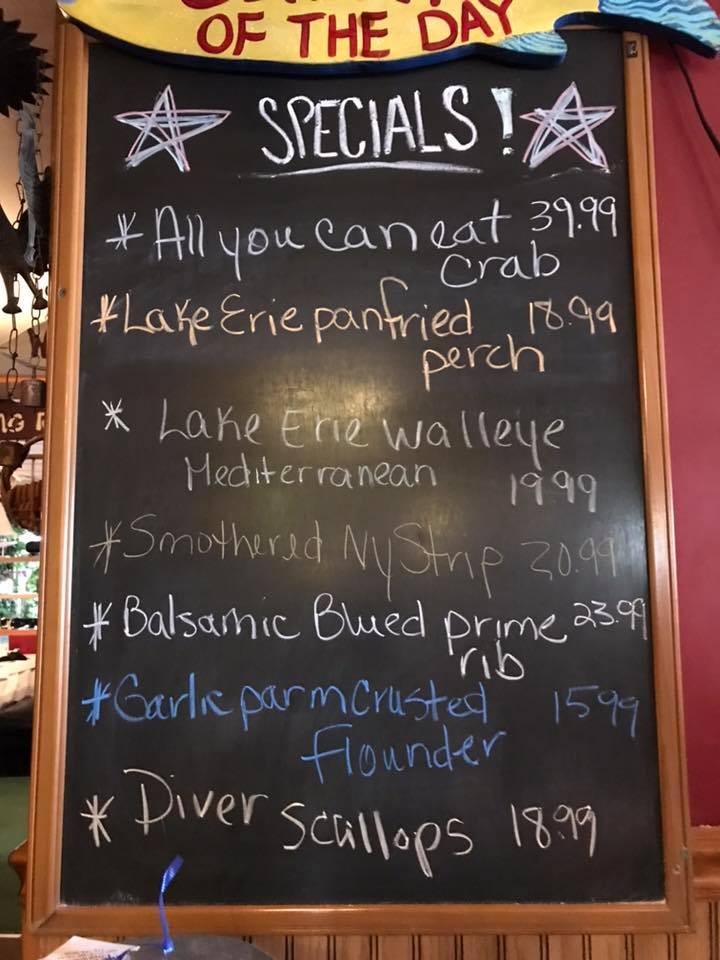 OF THE DAY
SPECIALS!
* All you can eat 39.99
crab
* Lake Erie panfried 18.99
perch
* Lake Erie walleye
Mediterranean 19.99
* Smothered NY Strip 20.99
* Balsamic Blued prime 23.99
rib
* Garlic parm crusted 15.99
flounder
* Diver Scallops 18.99